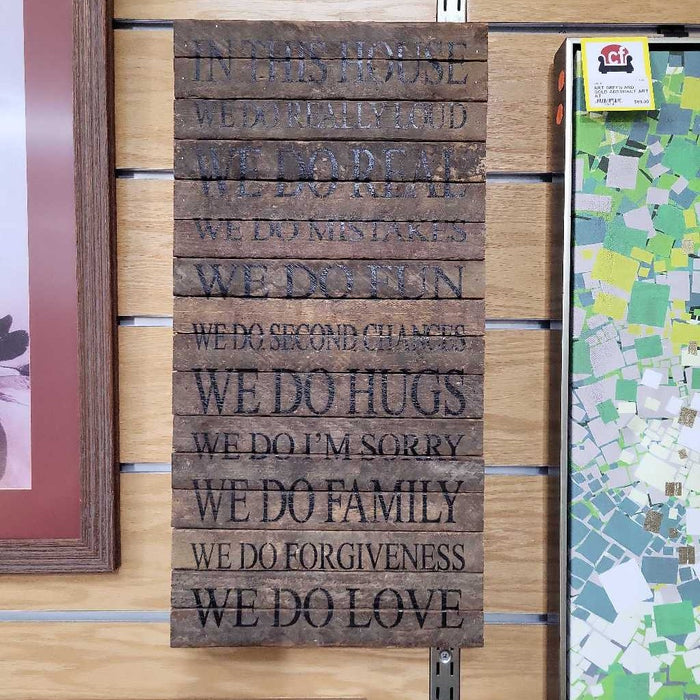 IN THIS HOUSE
WE DO REALLY LOUD
WE DO REAL
WE DO MISTAKES
WE DO FUN
WE DO SECOND CHANCES
WE DO HUGS
WE DO I'M SORRY
WE DO FAMILY
WE DO FORGIVENESS
WE DO LOVE
cf
ART GREEN AND
GOLD ABSTRACT ART